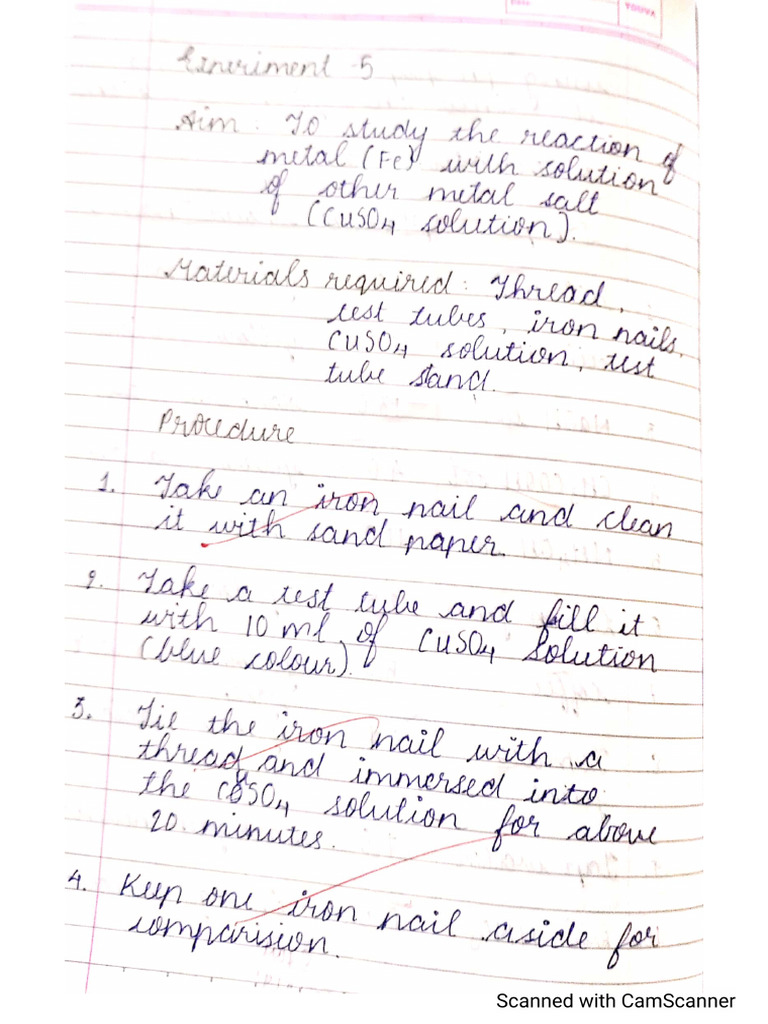 Experiment 5
Aim. To study the reaction of
metal (Fe) with solution
of other metal salt
(CuSO4 solution).
Materials required: Thread,
test tubes, iron nails,
CUSO4 solution, test
tube stand.
Procedure
1. Take an iron nail and clean
it with sand paper.
2. Take a test tube and fill it
with 10 ml of CUSO4 Solution
(blue colour).
3. Tie the iron nail with a
thread and immersed into
the CuSO4 solution for above
20 minutes.
4. Keep one iron nail aside for
comparision.
Scanned with CamScanner